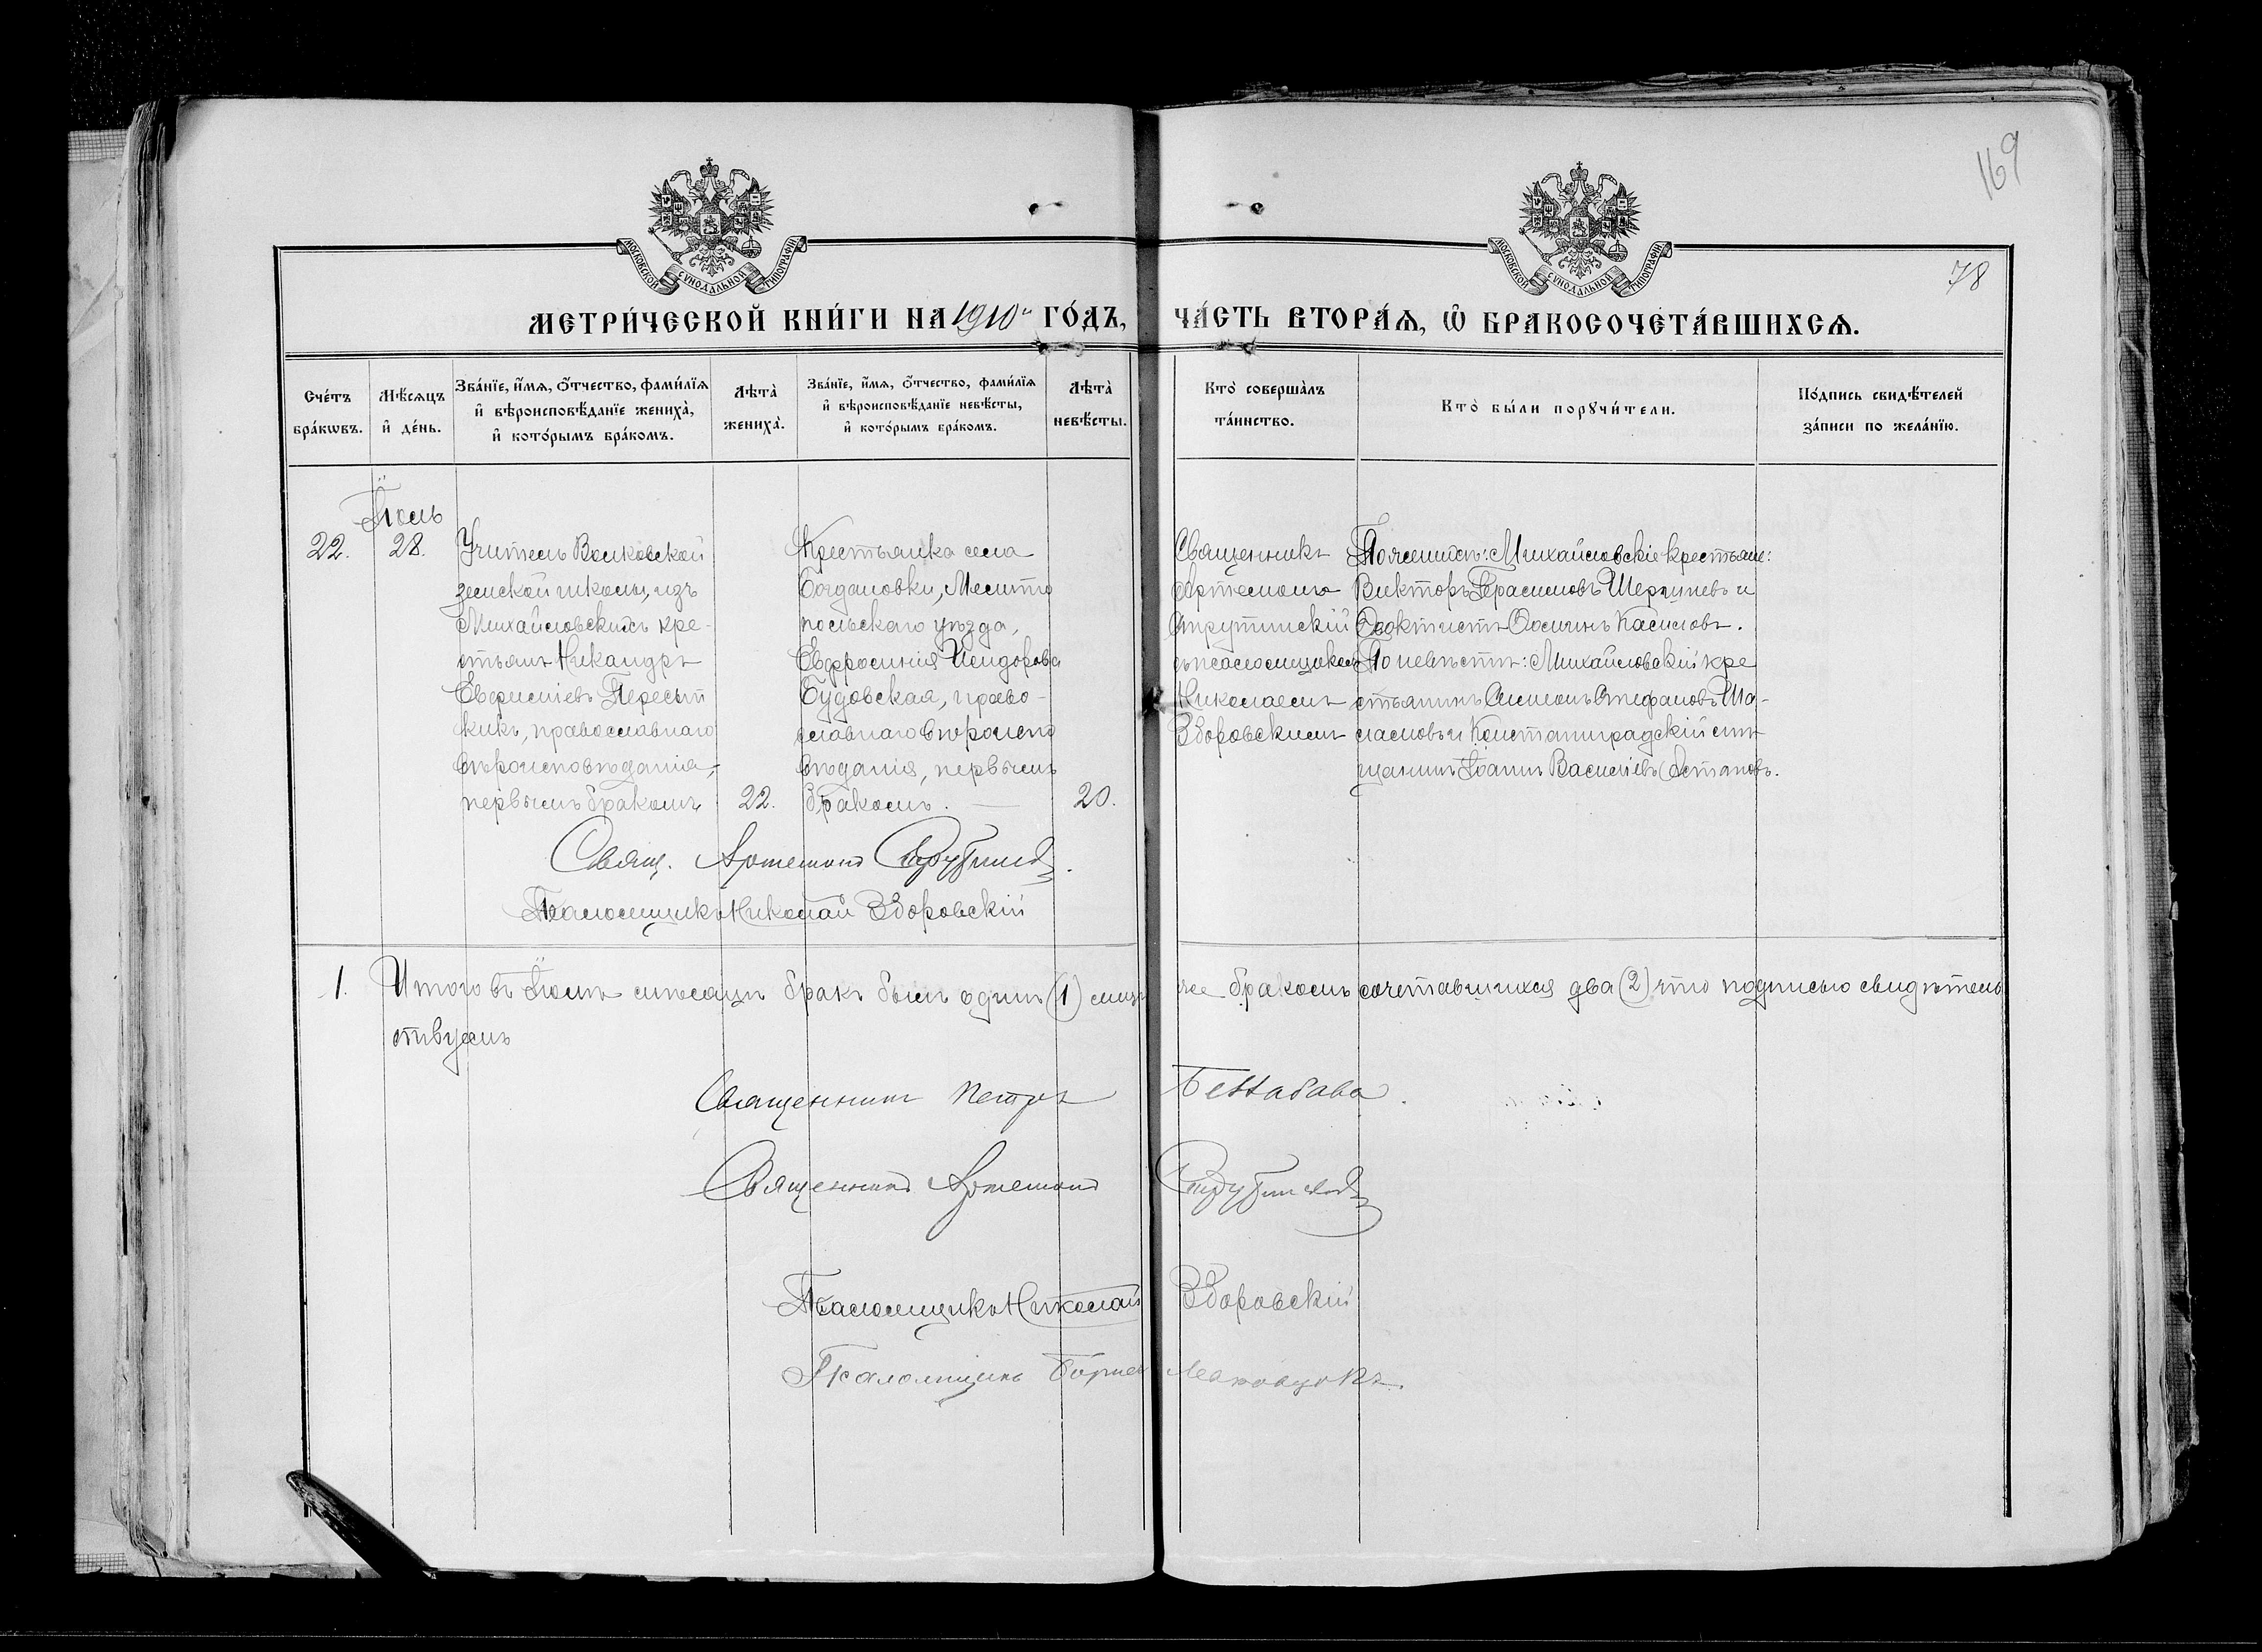 169
78
МОСКОВСКОЙ СѴНОДАЛЬНОЙ ТИПОГРАФІИ
МОСКОВСКОЙ СѴНОДАЛЬНОЙ ТИПОГРАФІИ
МЕТРИ́ЧЕСКОЙ КНИ́ГИ НА 1910й ГО́ДЪ, ЧА́СТЬ ВТОРА́Ѧ, Ѽ БРАКОСОЧЕТА́ВШИХСѦ.
Сче́тъ бра́кѡвъ.
Мѣ́сѧцъ и҆ де́нь.
Зва́нїе, и҆́мѧ, ѻ҆́тчество, фами́лїѧ и҆ вѣроисповѣ́данїе жениха̀, и҆ кото́рымъ бра́комъ.
Лѣта̀ жениха̀.
Зва́нїе, и҆́мѧ, ѻ҆́тчество, фами́лїѧ и҆ вѣроисповѣ́данїе невѣ́сты, и҆ кото́рымъ бра́комъ.
Лѣта̀ невѣ́сты.
Кто̀ соверша̀лъ та́инство.
Кто̀ бы́ли порꙋчи́тели.
По́дпись свидѣ́телей за́писи по жела́нїю.
Іюль
22.
28.
Учитель Волковской
земской школы, изъ
Михайловскихъ кре-
стьянъ Никандръ
Евфиміевъ Пересып
кинъ, православнаго
вѣроисповѣданія,
первымъ бракомъ
22.
Крестьянка села
Богдановки, Мелито
польскаго уѣзда,
Евфросинія Исидорова
Будовская, право-
славнаго вѣроиспо
вѣданія, первымъ
бракомъ.
20.
Священникъ
Артемонъ
Струтинскій
съ псаломщикомъ
Николаемъ
Здоровскимъ
По женихѣ: Михайловскіе крестьяне:
Викторъ Герасимовъ Шершневъ и
Ѳеоктистъ Ѳоминъ Касимовъ.
По невѣстѣ: Михайловскій кре
стьянинъ Симеонъ Стефановъ Ша-
ламовъ и Константиноградскій мѣ
щанинъ Іоаннъ Василіевъ Остаповъ.
Свящ. Артемонъ Струтинскій.
Псаломщикъ Николай Здоровскій
1.
Итого въ Іюлѣ мѣсяцѣ бракъ былъ одинъ (1) лицъ же бракомъ сочетавшихся два (2) что подписью свидѣтель
ствуемъ
Священникъ Петръ
Священникъ Артемонъ Струтинскій
Псаломщикъ Николай Здоровскій
Псаломщикъ